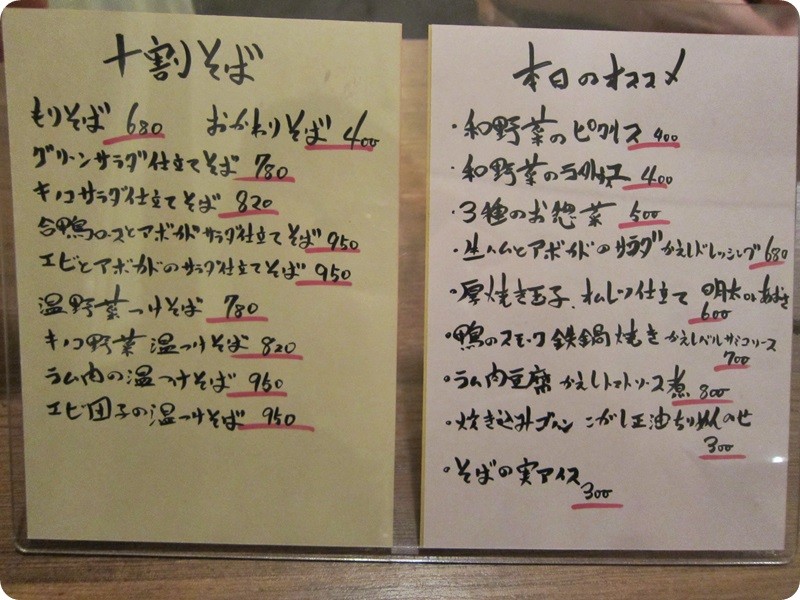 十割そば
もりそば 680 おかわりそば 400
グリーンサラダ仕立てそば 780
キノコサラダ仕立てそば 820
合鴨ロースとアボカドサラダ仕立てそば 950
エビとアボカドのサラダ仕立てそば 950
温野菜つけそば 780
キノコ野菜温つけそば 820
ラム肉の温つけそば 950
エビ団子の温つけそば 950
本日のオススメ
・和野菜のピクルス 400
・和野菜の 400
・3種のお惣菜 500
・生ハムとアボカドのサラダ かえしドレッシング 680
・厚焼き玉子、オムレツ仕立て 明太orあおさ
600
・鴨のスモーク 鉄鍋焼き かえしバルサミコソース
700
・ラム肉豆腐 かえしトマトソース煮 800
・炊き込みゴハン こがし正油ちりめんのせ
300
・そばの実アイス
300